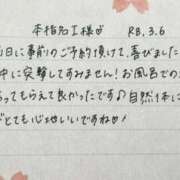 本指名I様♡ R8.3.6
当日に事前のご予約頂けて喜びました
中に突撃してすみません!お風呂での
あってもらえて良かったです♪自然体に
どとても心地いいですね♡!